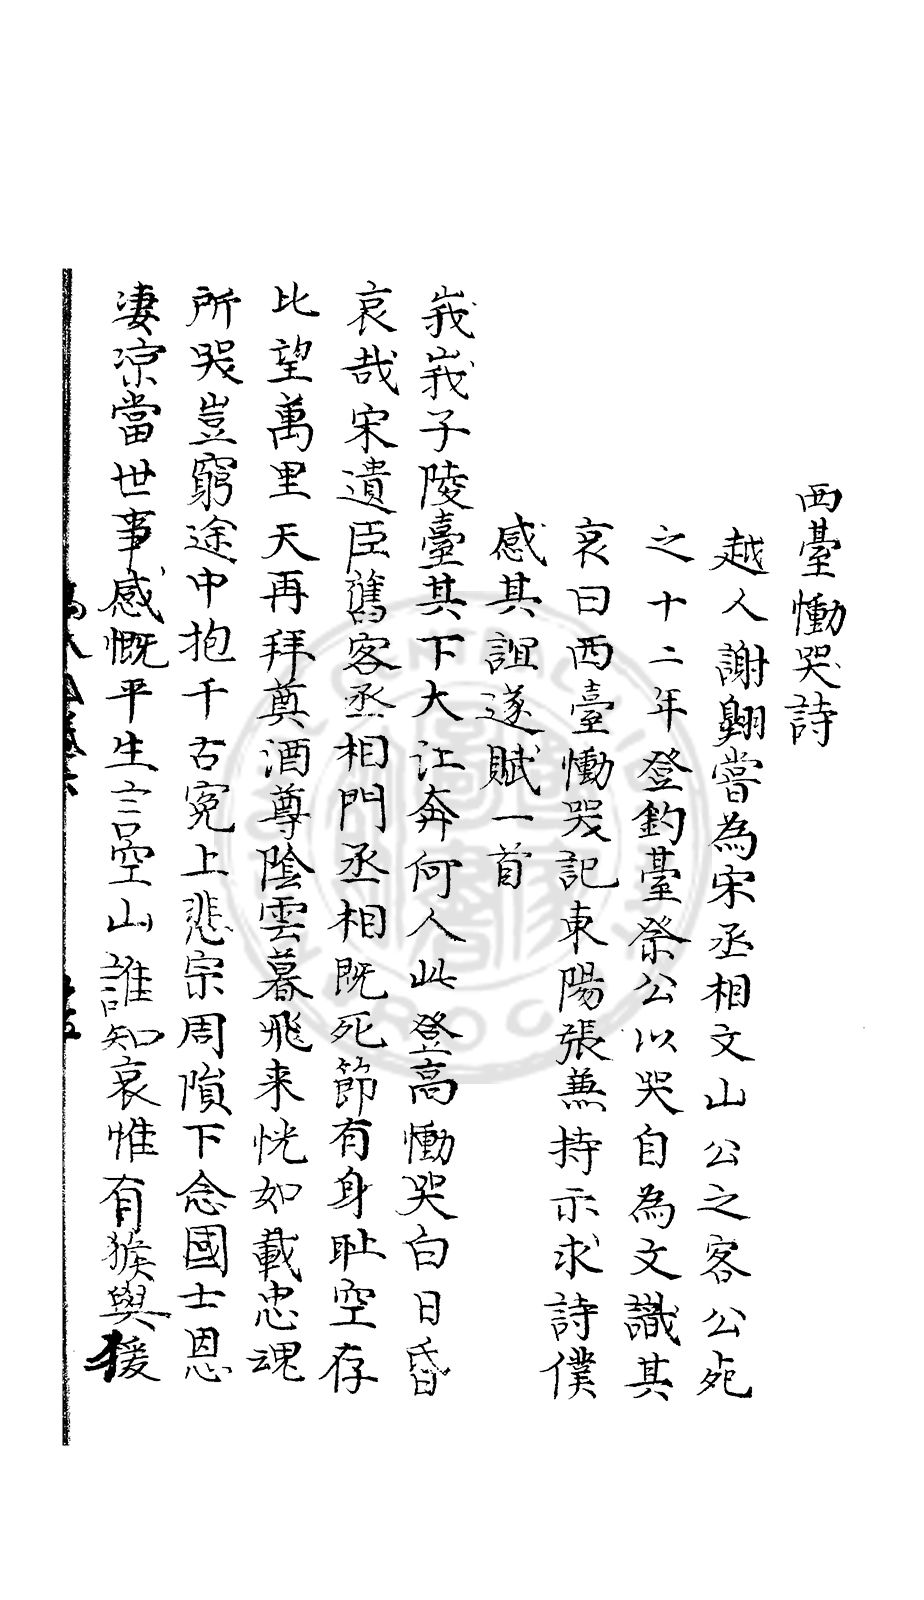 西臺慟哭詩
越人謝翺嘗為宋丞相文山公之客公死
之十二年登釣臺祭公以哭自為文識其
哀曰西臺慟哭記東陽張𠔥持示求詩僕
感其誼遂賦一首
峩峩子陵臺其下大江奔何人此登高慟哭白日昏
哀哉宋遺臣舊客丞相門丞相既死節有身耻空存
比望萬里天再拜奠酒尊陰雲暮飛来恍如載忠魂
所哭豈窮途中抱千古冤上悲宗周隕下念國士恩
凄凉當世事感慨平生言空山誰知哀惟有猴與猨